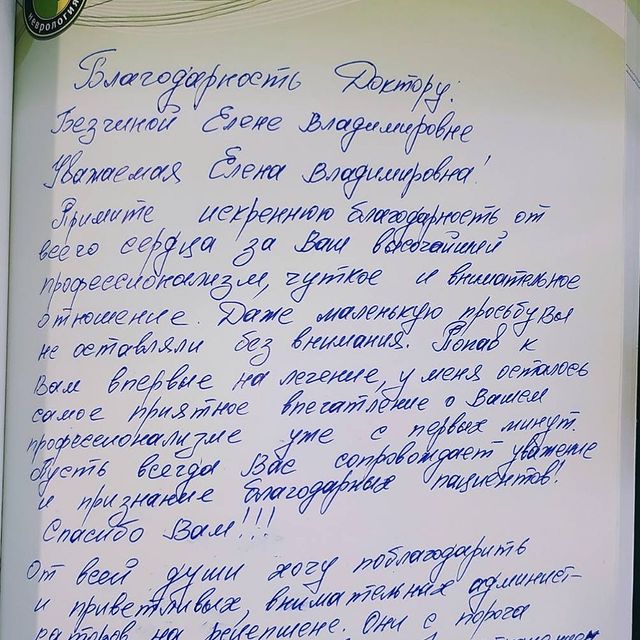 неврология
Благодарность Доктору:
Безчиной Елене Владимировне
Уважаемая Елена Владимировна!
Примите искреннюю благодарность от
всего сердца за Ваш высочайший
профессионализм, чуткое и внимательное
отношение. Даже маленькую просьбу Вы
не оставляли без внимания. Попав к
Вам впервые на лечение, у меня осталось
самое приятное впечатление о Вашем
профессионализме уже с первых минут.
Пусть всегда Вас сопровождает уважение
и признание благодарных пациентов!
Спасибо Вам!!!
От всей души хочу поблагодарить
и приветливых, внимательных админист-
раторов на ресепшене. Они с порога